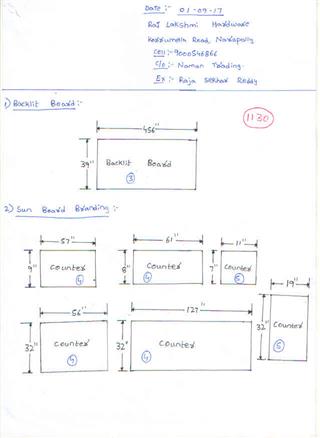 Date :- 01-09-17
Raj Lakshmi Hardware
Road, Narapally
Cell :- 9000546866
C/o :- Naman Trading.
Ex :- Raja Sekhar Reddy
1) Backlit Board :-
1130
456"
39"
Backlit Board
3
2) Sun Board Branding :-
57" 61" 11"
9" Counter 4
8" Counter 4
7" Counter 5
19"
56" 127"
32" Counter
32" Counter 4
32" Counter 5